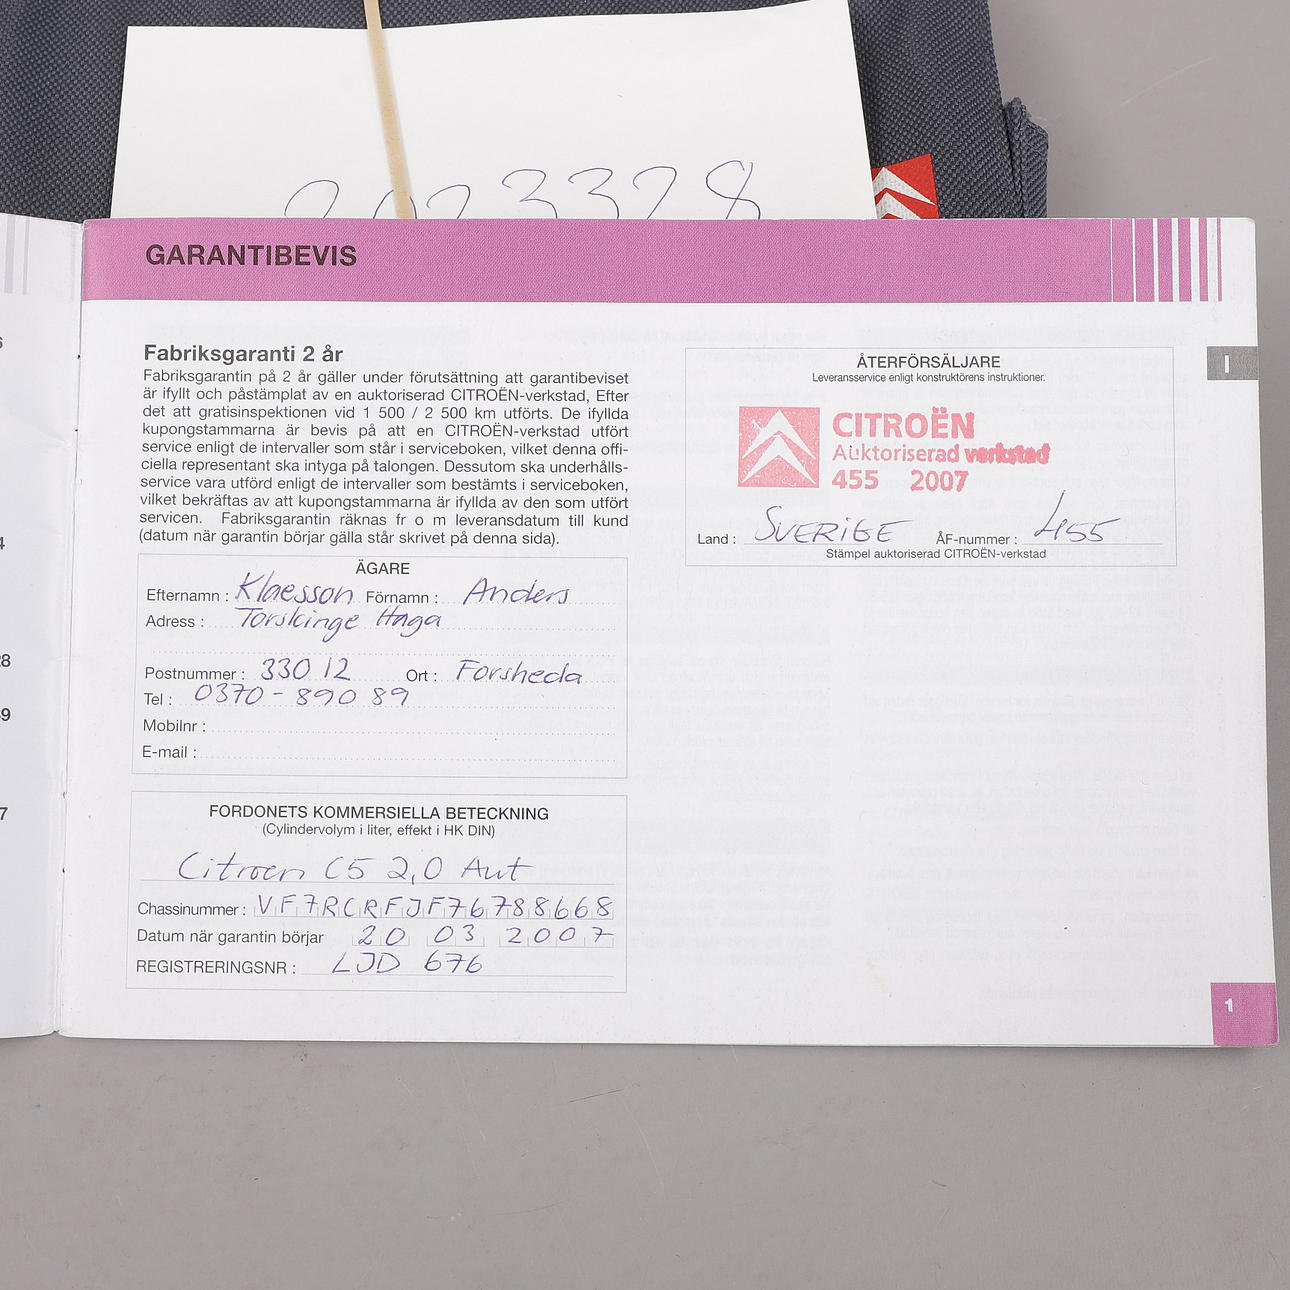 GARANTIBEVIS
Fabriksgaranti 2 år
Fabriksgarantin på 2 år gäller under förutsättning att garantibeviset
är ifyllt och påstämplat av en auktoriserad CITROËN-verkstad, Efter
det att gratisinspektionen vid 1 500 / 2 500 km utförts. De ifyllda
kupongstammarna är bevis på att en CITROËN-verkstad utfört
service enligt de intervaller som står i serviceboken, vilket denna offi-
ciella representant ska intyga på talongen. Dessutom ska underhålls-
service vara utförd enligt de intervaller som bestämts i serviceboken,
vilket bekräftas av att kupongstammarna är ifyllda av den som utfört
servicen. Fabriksgarantin räknas fr o m leveransdatum till kund
(datum när garantin börjar gälla står skrivet på denna sida).
ÄGARE
Efternamn : Klaesson Förnamn : Anders
Adress : Torskinge Haga
Postnummer : 330 12 Ort : Forsheda
Tel : 0370 - 890 89
Mobilnr :
E-mail :
FORDONETS KOMMERSIELLA BETECKNING
(Cylindervolym i liter, effekt i HK DIN)
Citroen C5 2,0 Aut
Chassinummer : VF7RCRFJF76788668
Datum när garantin börjar 20 03 2007
REGISTRERINGSNR : LJD 676
ÅTERFÖRSÄLJARE
Leveransservice enligt konstruktörens instruktioner.
CITROËN
Auktoriserad verkstad
455 2007
Land : SVERIGE ÅF-nummer : 455
Stämpel auktoriserad CITROËN-verkstad
I
1
6
4
28
39
7